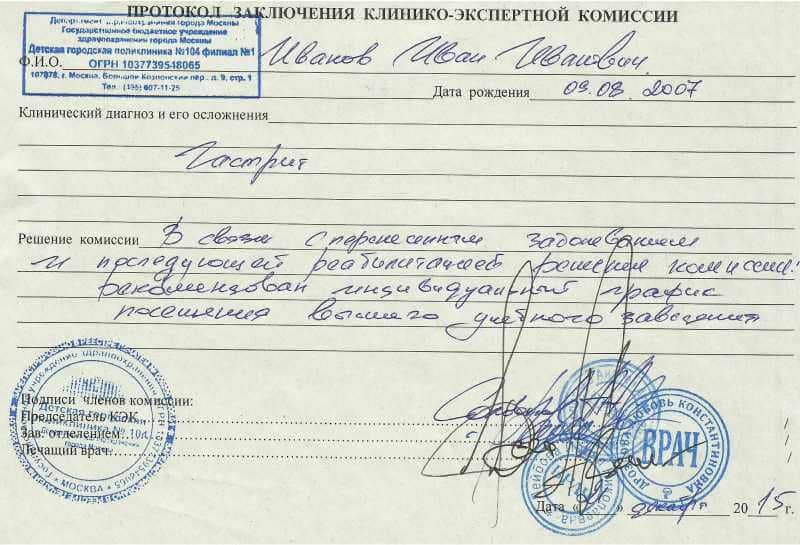 ПРОТОКОЛ ЗАКЛЮЧЕНИЯ КЛИНИКО-ЭКСПЕРТНОЙ КОМИССИИ
Департамент здравоохранения города Москвы
Государственное бюджетное учреждение
здравоохранения города Москвы
Детская городская поликлиника №104 филиал №1
ОГРН 1037739548065
107078, г. Москва, Большой Козловский пер., д. 9, стр. 1
Тел.: (495) 607-11-25
Ф.И.О. Иванов Иван Иванович.
Дата рождения 09.08.2007
Клинический диагноз и его осложнения
Гастрит
Решение комиссии В связи с перенесенным заболеванием
и последующей реабилитацией решением комиссии:
рекомендован индивидуальный график
посещения высшего учебного заведения
Подписи членов комиссии:
Председатель КЭК
Зав. отделением:
Лечащий врач:
Детская городская
поликлиника № 104
МОСКВА
ЛЮБОВЬ КОНСТАНТИНОВНА
ВРАЧ
Дата « » декабря 2015 г.